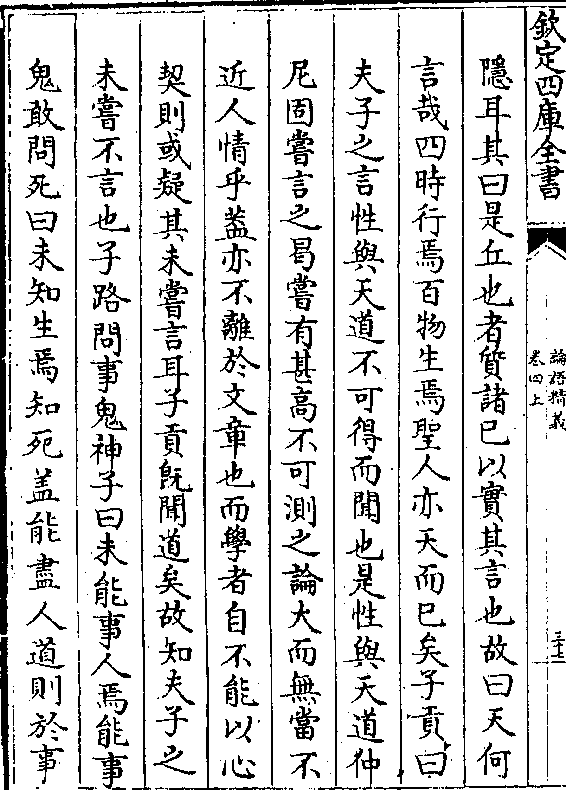 欽定四庫全書
論語精義
卷四上
隱耳其曰是丘也者質諸已以實其言也故曰天何
言哉四時行焉百物生焉聖人亦天而已矣子貢曰
夫子之言性與天道不可得而聞也是性與天道仲
尼固嘗言之曷嘗有甚高不可測之論大而無當不
近人情乎蓋亦不離於文章也而學者自不能以心
契則或疑其未嘗言耳子貢既聞道矣故知夫子之
未嘗不言也子路問事鬼神子曰未能事人焉能事
鬼敢問死曰未知生焉知死盖能盡人道則於事